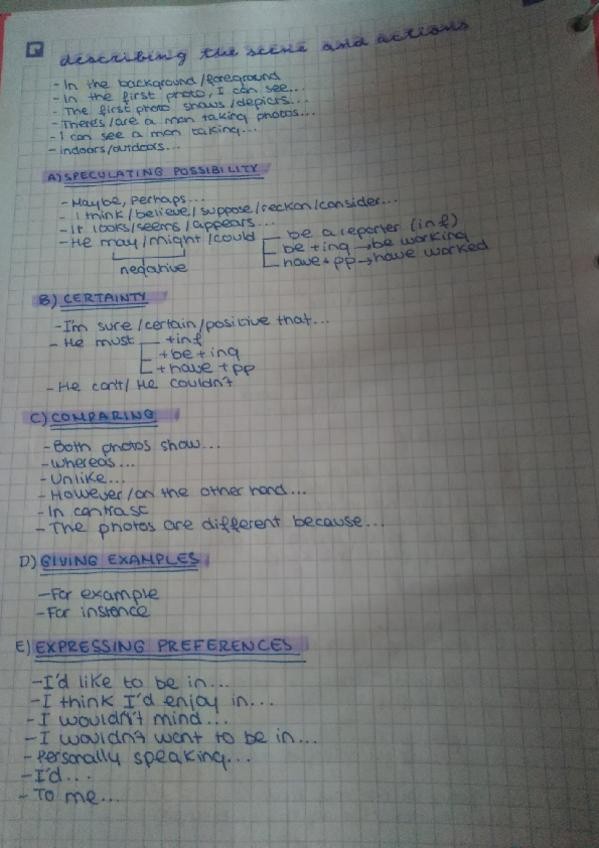 describing the scene and actions
- In the background/foreground
- In the first photo, I can see...
- The first photo shows/depicts...
- There's/are a man taking photos...
- I can see a man taking...
- indoors/outdoors...
A) SPECULATING POSSIBILITY
- Maybe, Perhaps...
- I think/believe/suppose/reckon/consider...
- It looks/seems/appears...
- He may/might/could
be a reporter (inf)
be + ing → be working
have + pp → have worked
negative
B) CERTAINTY
- I'm sure/certain/positive that...
- He must
+ inf
+ be + ing
+ have + pp
- He can't/ He couldn't
C) COMPARING
- Both photos show...
- whereas...
- Unlike...
- However/on the other hand...
- In contrast
- The photos are different because...
D) GIVING EXAMPLES
- For example
- For instance
E) EXPRESSING PREFERENCES
- I'd like to be in...
- I think I'd enjoy in...
- I wouldn't mind...
- I wouldn't want to be in...
- Personally speaking...
- I'd...
- To me...